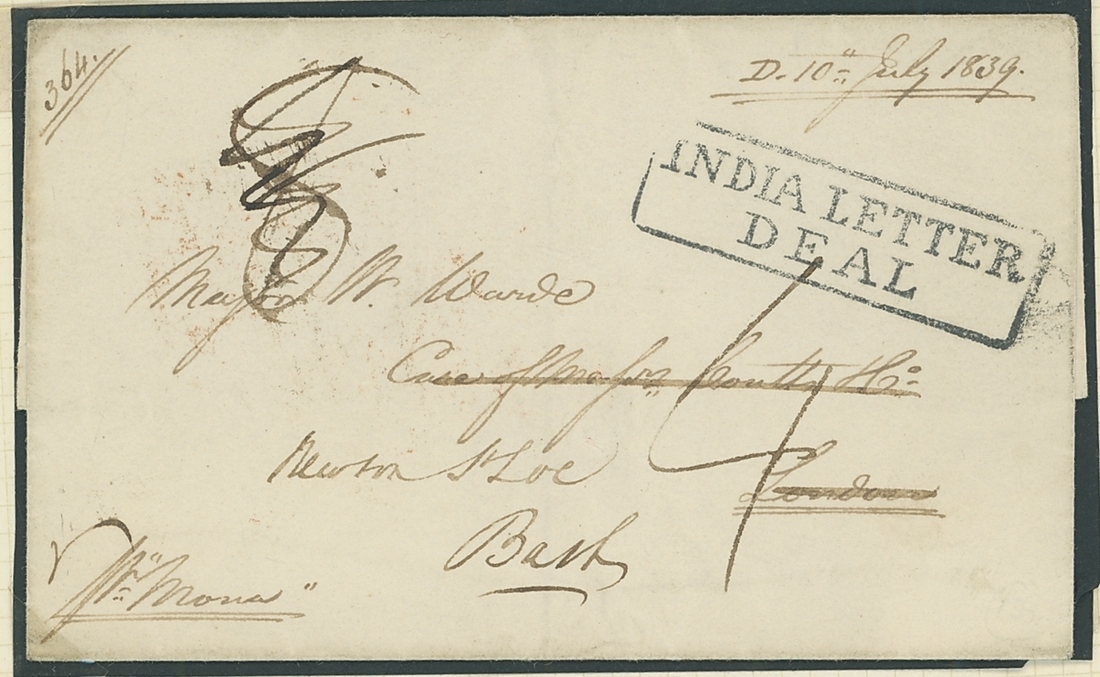 364.
D. 10" July 1839.
INDIA LETTER
DEAL
Major W. Warde
Care of Major
Newton St Loe
London
Bath
"Mona"